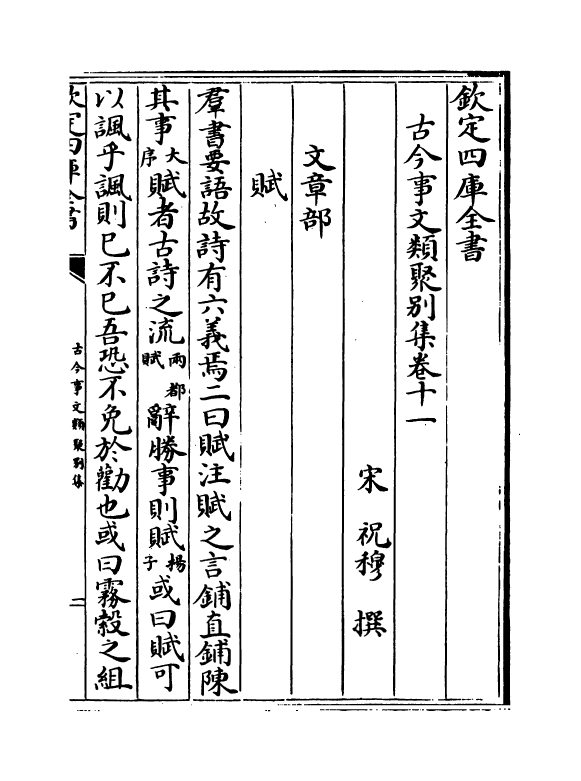 欽定四庫全書
古今事文類聚別集卷十一
宋 祝穆 撰
文章部
賦
羣書要語故詩有六義焉二曰賦注賦之言鋪直鋪陳
其事大序賦者古詩之流兩都賦辭勝事則賦揚子或曰賦可
以諷乎諷則已不已吾恐不免於勸也或曰霧縠之組
欽定四庫全書
古今事文類聚別集
一